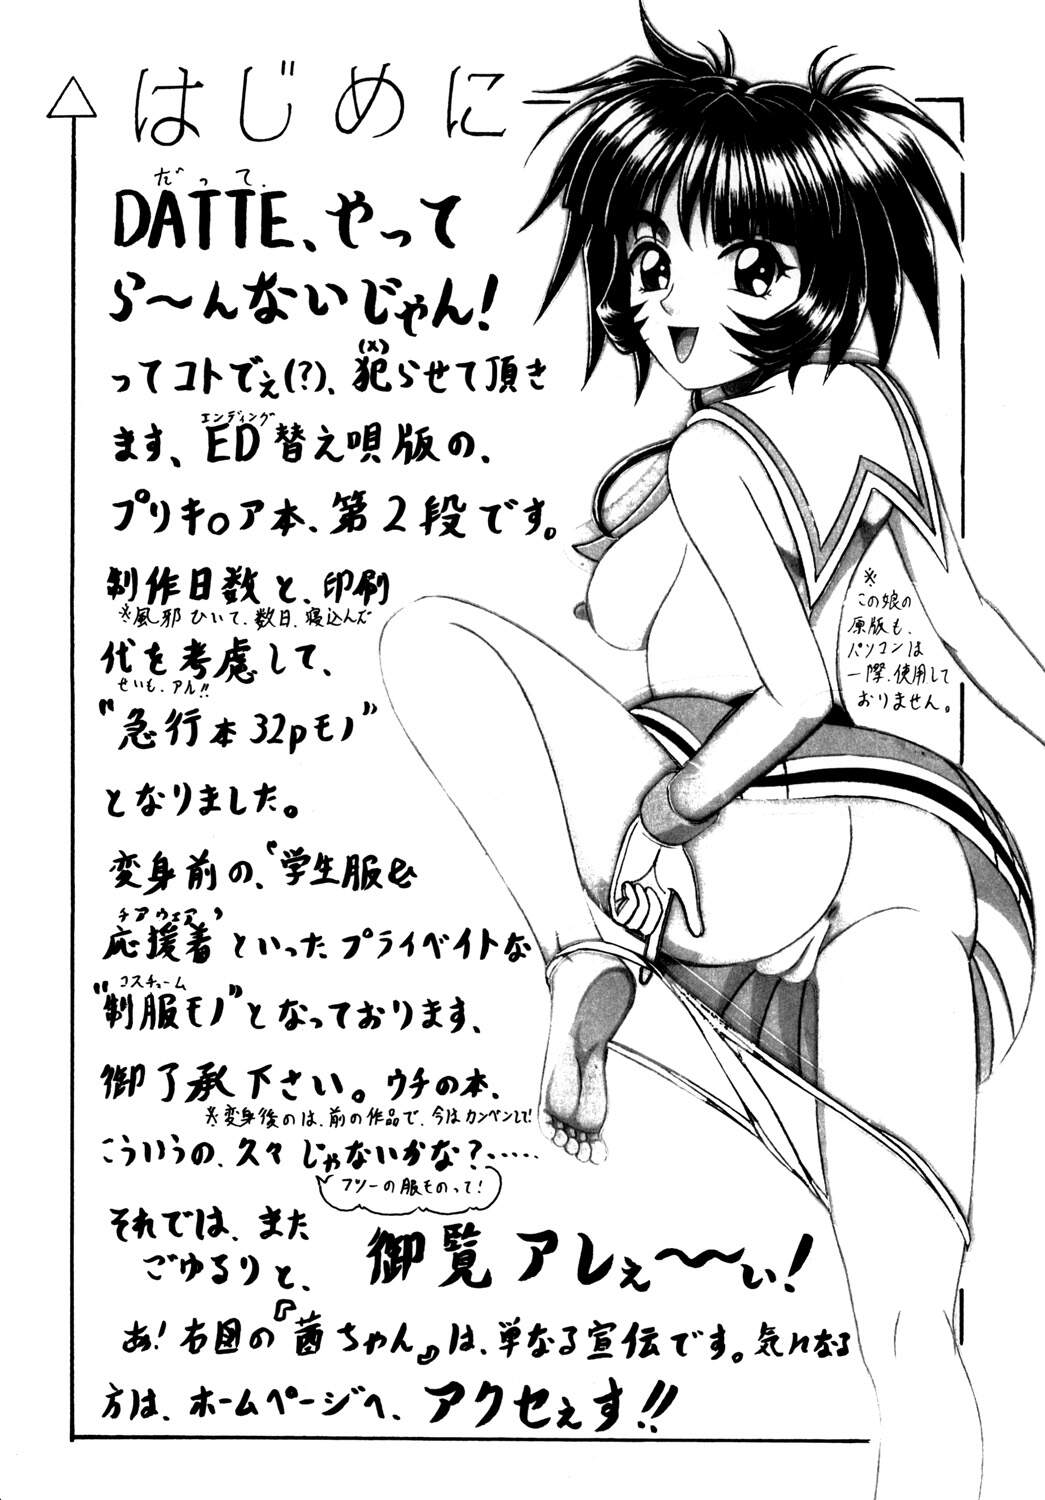 はじめに
だって
DATTE、やって
ら～んないじゃん!
ってコトでぇ(?)、犯らせて頂き
(×)
ます、ED替え唄版の、
エンディング
プリキ。ア本、第2段です。
制作日数と、印刷
※風邪ひいて、数日、寝込んだ
代を考慮して、
せいも、アル!!
"急行本32pモノ"
となりました。
変身前の、『学生服&
チアウェア
応援着』といったプライベイトな
コスチューム
"制服モノ"となっております、
御了承下さい。ウチの本、
※変身後のは、前の作品で、今はカンベンして!
こういうの、久々じゃないかな?‥‥‥
フツーの服ものって!
それでは、また
ごゆるりと、
御覧アレぇ～～ぃ!
あ!右図の『茜ちゃん』は、単なる宣伝です。気になる
方は、ホームページへ、アクセぇす!!
※
この娘の
原版も、
パソコンは
一際、使用して
おりません。